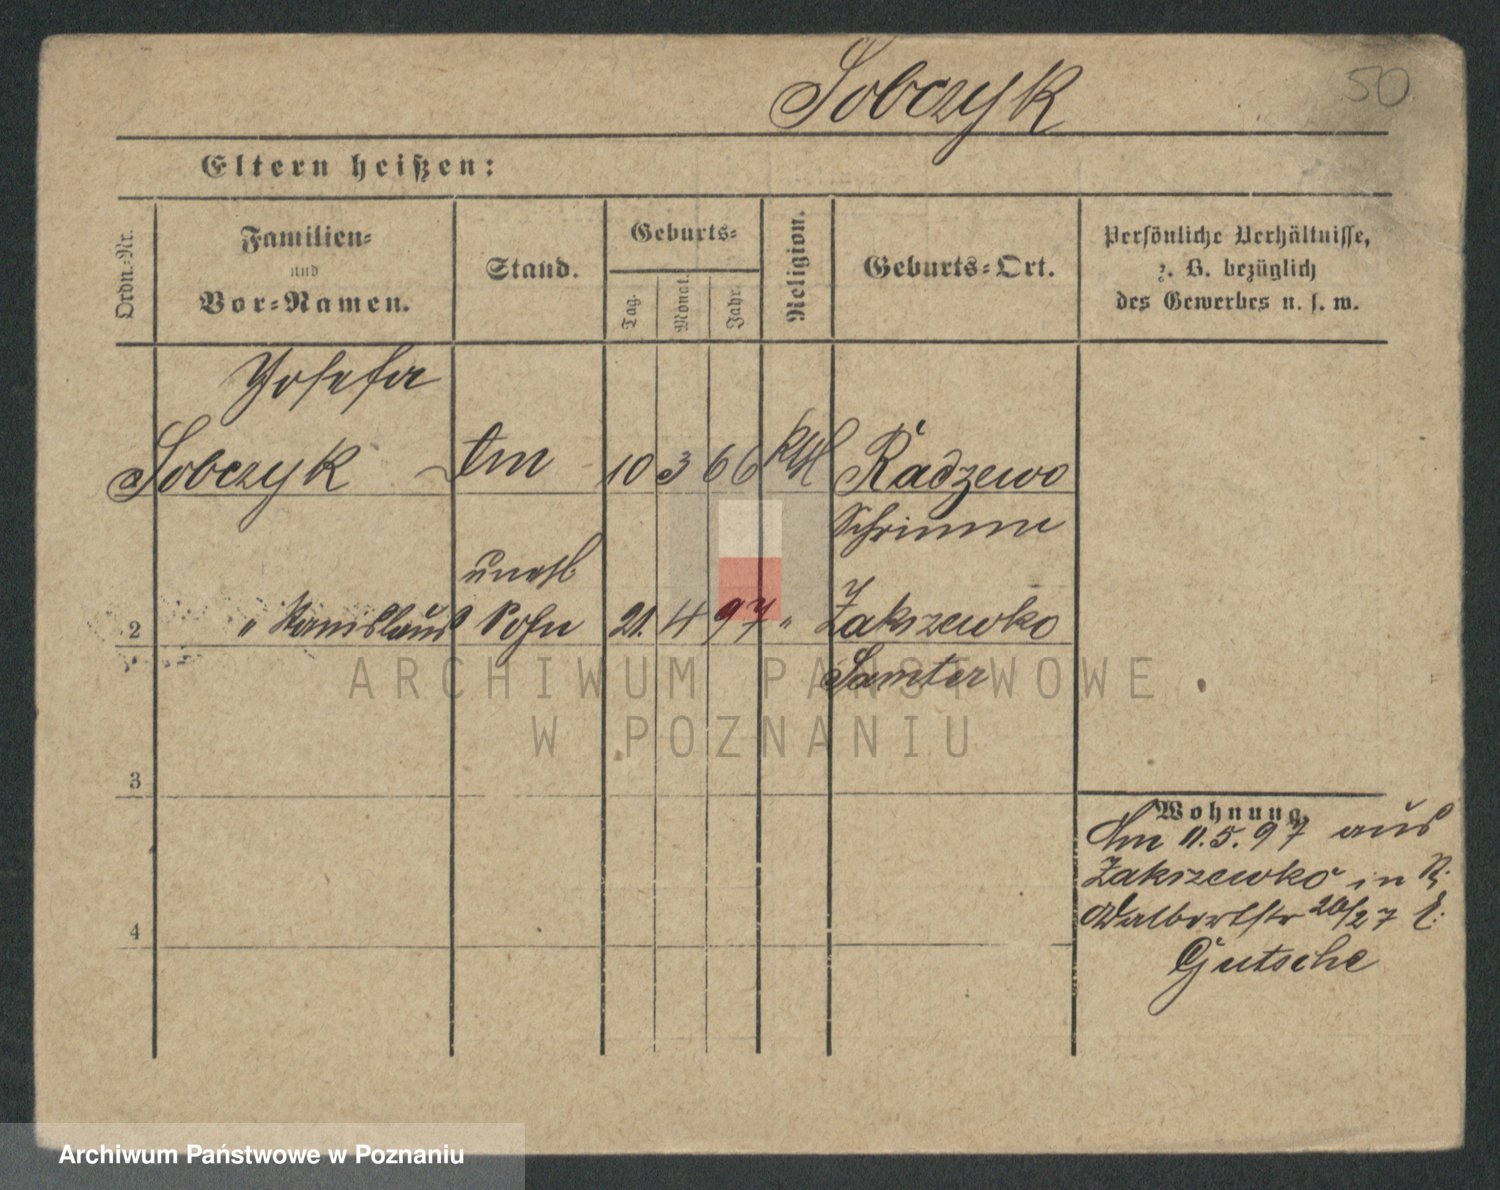 Sobczyk
50
Eltern heißen:
Ordn.-Nr.
Familien-
und
Vor-Namen.
Stand.
Geburts-
Tag.
Monat.
Jahr.
Religion.
Geburts-Ort.
Persönliche Verhältnisse,
z. B. bezüglich
des Gewerbes u. s. w.
Josefa
Sobczyk 10 3 66 kth Radzewo
Schrimm
unehl
2 " Stanislaus Sohn 21. 4 97 " Zakrzewko
Samter
ARCHIWUM PAŃSTWOWE
W POZNANIU
3
Wohnung.
Am 11.5.97 aus
Zakrzewko in
26/27
4
Gutsche
Archiwum Państwowe w Poznaniu